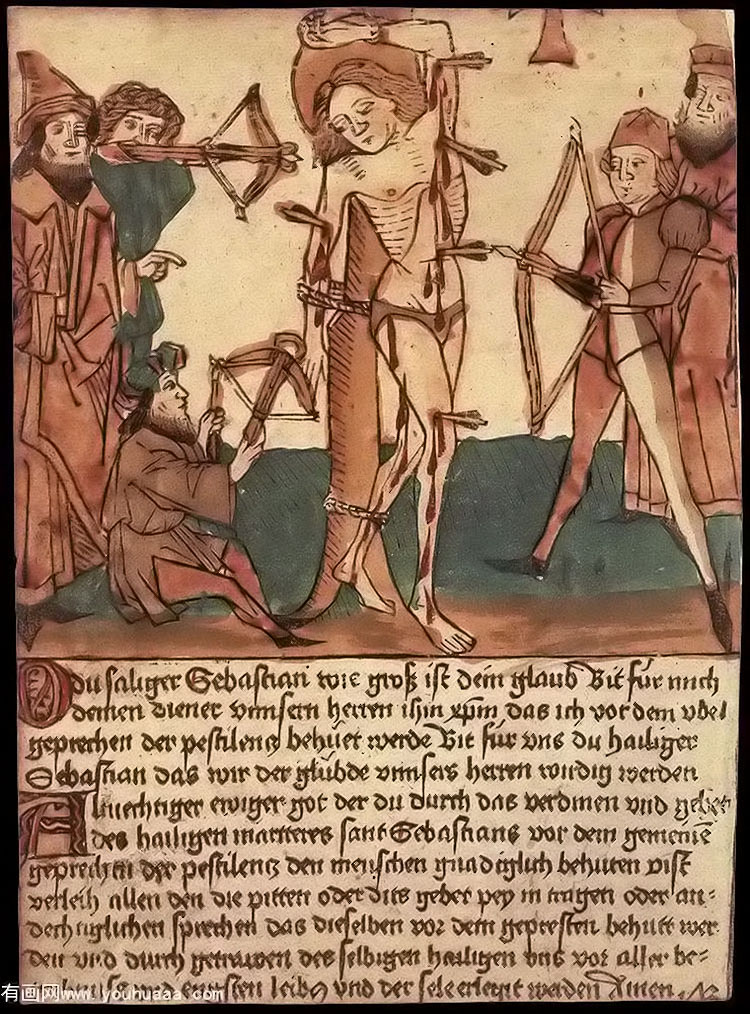 O du saliger Sebastian wie groß ist dein glaub Bit für mich
deinen diener vnnsern herren ihm xpm das ich vor dem vbel
geprechen der pestilentz behüet werde Bit für vns du hailiger
Sebastian das wir der glübde vnnsers herren wirdig werden
Almechtiger ewiger got der du durch das verdinen vnd gebet
des hailigen martrers sant Sebastians vor dem gemeinē
geprechen der pestilentz den menschen gnadiglich behuten pist
verleih allen den die pitten oder dits gebet pey in tragen oder an-
dechtiglichen sprechen das dieselben vor dem gepresten behutt wer
den vnd durch getrawen des selbigen hailigen vns vor aller be-
vnd der sele erlegit werden Amen
有画网www.youhuaaa.com